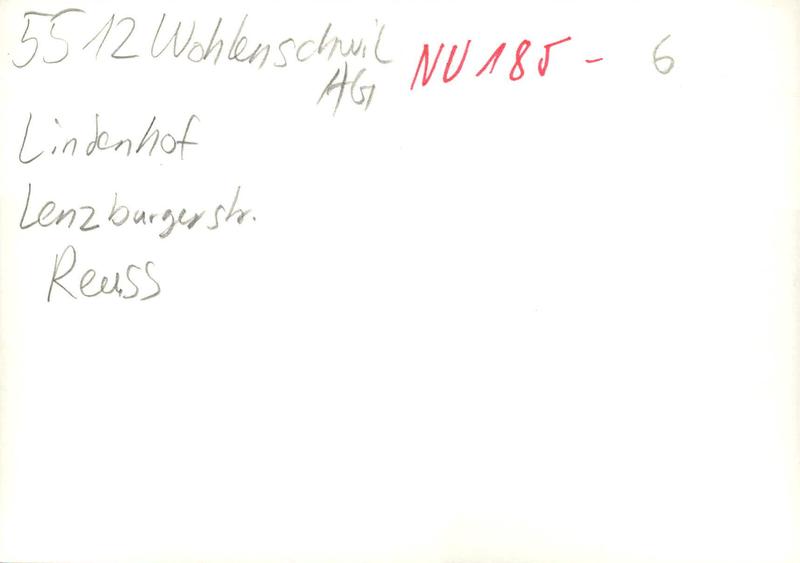 5512 Wohlenschwil NU 185 - 6
AG
Lindenhof
Lenzburgerstr.
Reuss